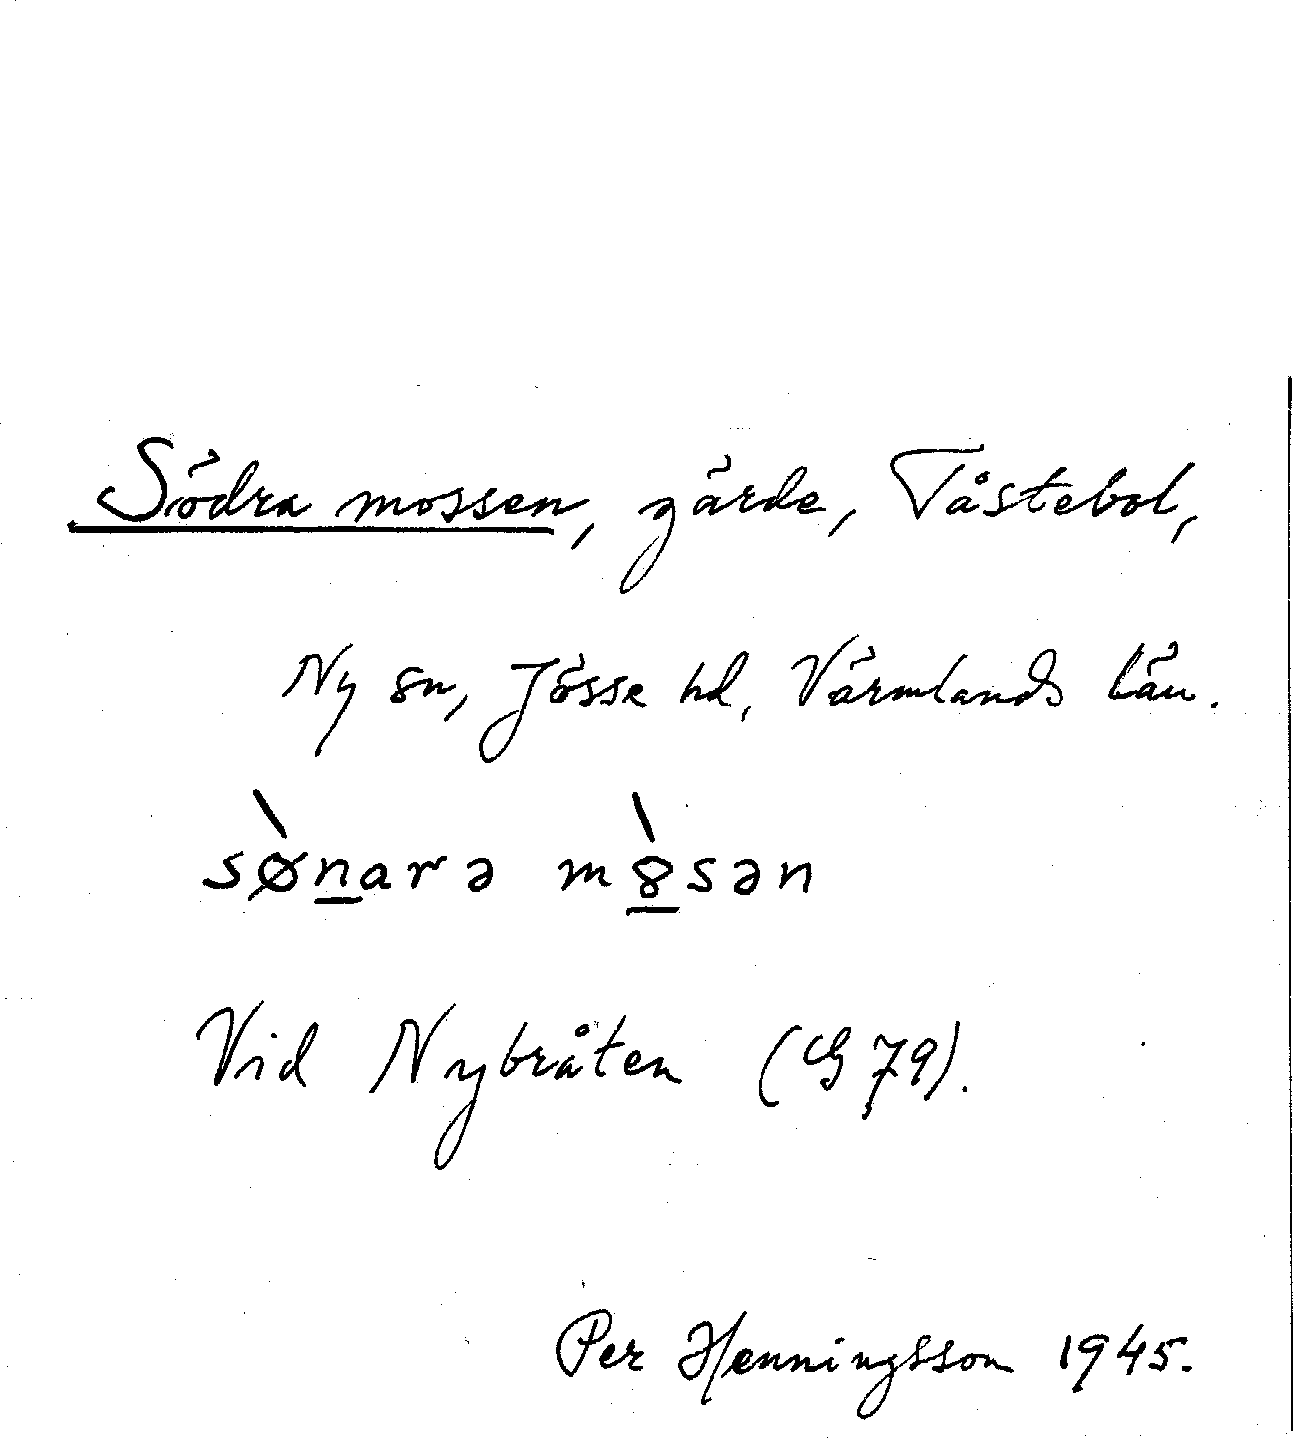 Södra mossen, gärde, Tåstebol,
Ny sn, Jösse hd, Värmlands län.
sø̀n̲arə mò̲sən
Vid Nybråten (G 79).
Per Henningsson 1945.